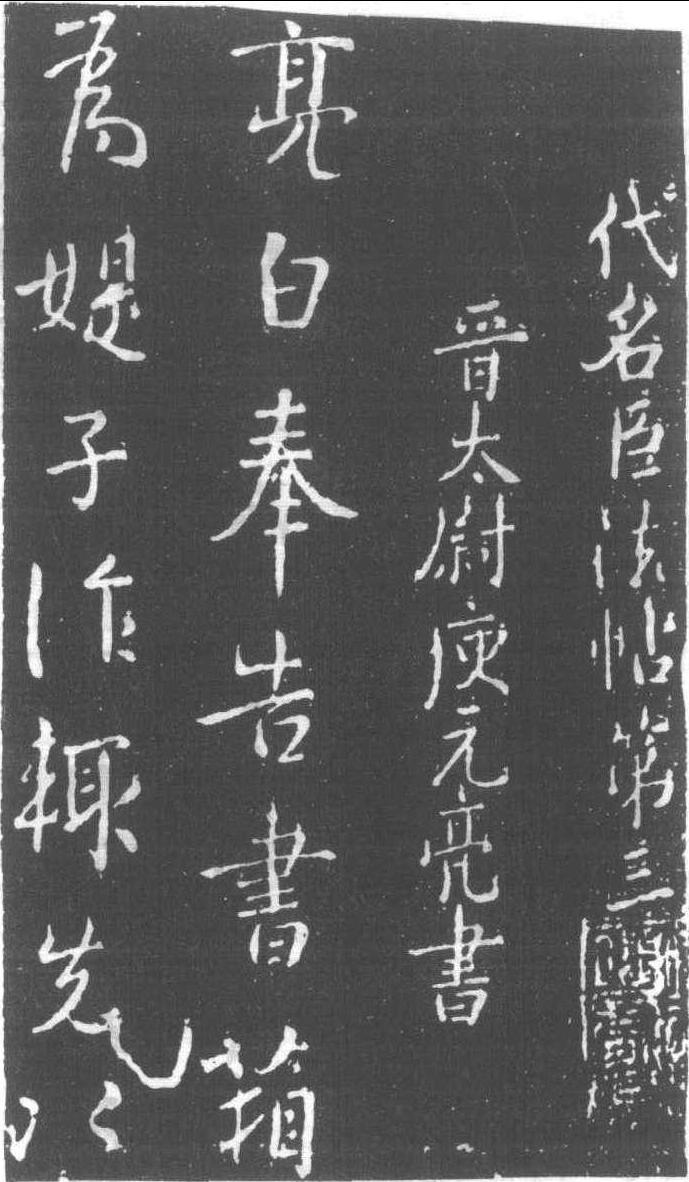 代名臣法帖第三
晉太尉庾元亮書
亮白奉告書箱
為媞子作輒先以